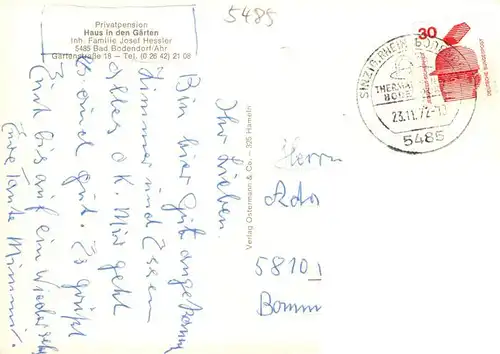 5485
Privatpension
Haus in den Gärten
Inh. Familie Josef Hessler
5485 Bad Bodendorf/Ahr
Gartenstraße 18 — Tel. (0 26 42) 21 08
Ihr Lieben.
Bin hier gut angekomm
Zimmer und Essen
alles o K. Mir geht
es auch gut. Es grüßt
Euch bis auf ein Wiederseh
Eure Tante Mimmi.
Verlag Ostermann & Co., 325 Hameln
30
DEUTSCHE BUNDESPOST
SINZIG, RHEIN - BODE
THERMA
BODE
23.11.72-1
5485
Herrn
5810